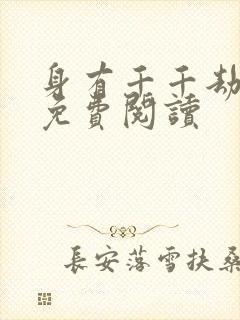 身有千千劫
免費閱讀
長安落雪扶桑